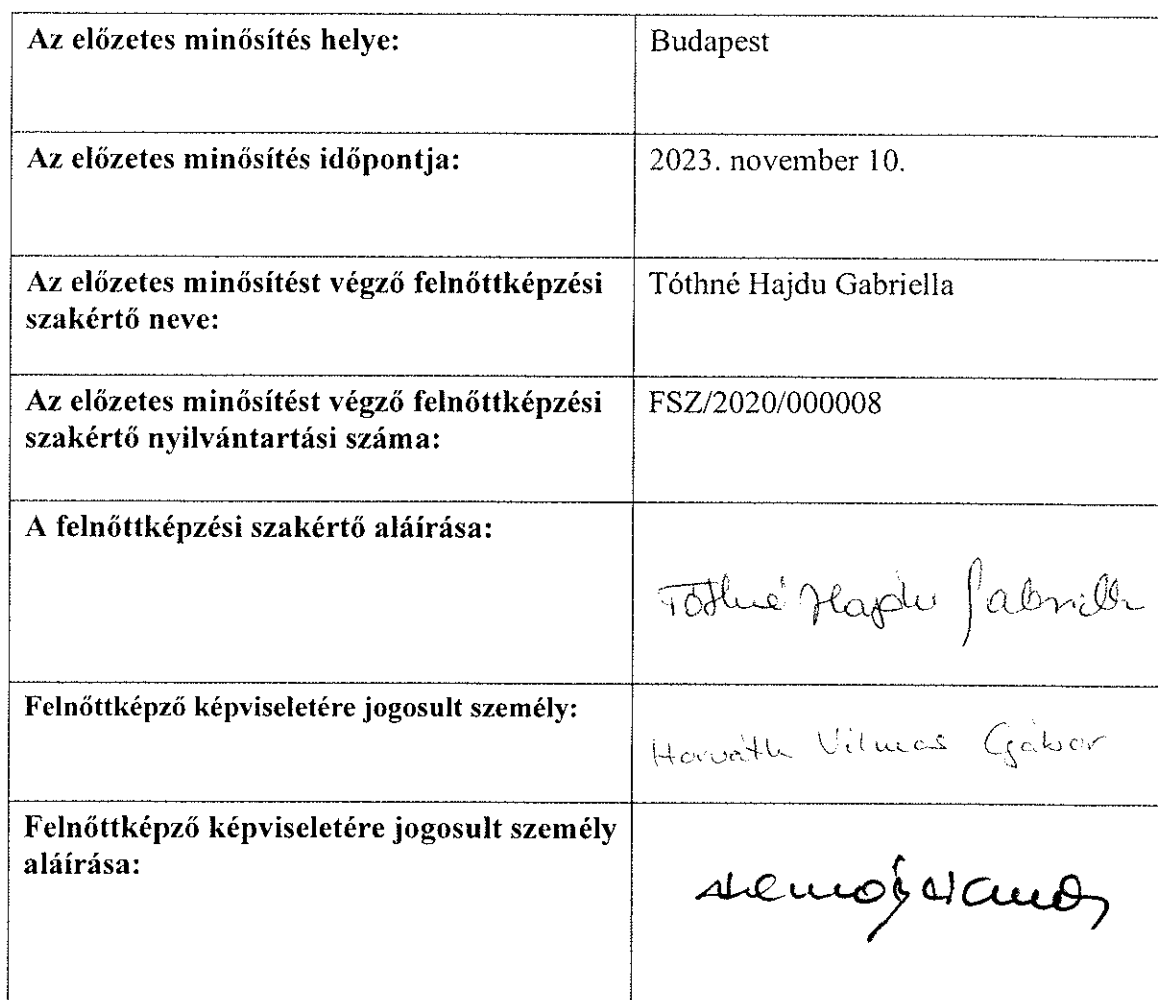 Az előzetes minősítés helye:
Budapest
Az előzetes minősítés időpontja:
2023. november 10.
Az előzetes minősítést végző felnőttképzési
szakértő neve:
Tóthné Hajdu Gabriella
Az előzetes minősítést végző felnőttképzési
szakértő nyilvántartási száma:
FSZ/2020/000008
A felnőttképzési szakértő aláírása:
Tóthné Hajdu Gabriella
Felnőttképző képviseletére jogosult személy:
Horváth Vilmos Gábor
Felnőttképző képviseletére jogosult személy
aláírása: